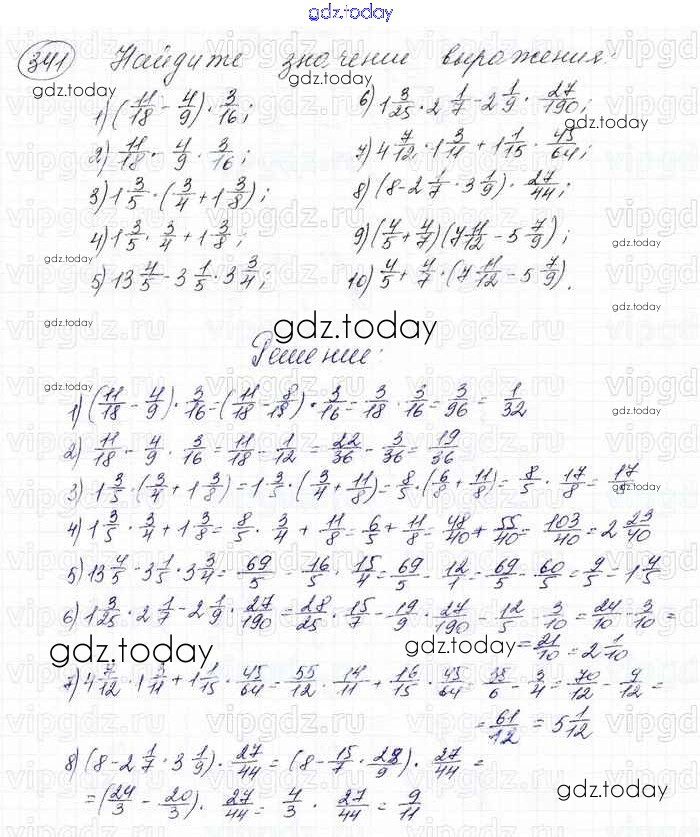 gdz.today
341 Найдите значение выражения:
1) (11/18 - 4/9) · 3/16;
2) 11/18 - 4/9 · 3/16;
3) 1 3/5 · (3/4 + 1 3/8);
4) 1 3/5 · 3/4 + 1 3/8;
5) 13 4/5 - 3 1/5 · 3 3/4;
6) 1 3/25 · 2 1/7 - 2 1/9 · 27/190;
7) 4 7/12 · 1 3/11 + 1 1/15 · 45/64;
8) (8 - 2 1/7 · 3 1/9) · 27/44;
9) (4/5 + 4/7)(7 11/12 - 5 7/9);
10) 4/5 + 4/7 · (7 11/12 - 5 7/9).
gdz.today
Решение:
1) (11/18 - 4/9) · 3/16 = (11/18 - 8/18) · 3/16 = 3/18 · 3/16 = 3/96 = 1/32
2) 11/18 - 4/9 · 3/16 = 11/18 - 1/12 = 22/36 - 3/36 = 19/36
3) 1 3/5 · (3/4 + 1 3/8) = 1 3/5 · (3/4 + 11/8) = 8/5 · (6/8 + 11/8) = 8/5 · 17/8 = 17
4) 1 3/5 · 3/4 + 1 3/8 = 8/5 · 3/4 + 11/8 = 6/5 + 11/8 = 48/40 + 55/40 = 103/40 = 2 23/40
5) 13 4/5 - 3 1/5 · 3 3/4 = 69/5 - 16/5 · 15/4 = 69/5 - 12/1 = 69/5 - 60/5 = 9/5 - 1 4/5
6) 1 3/25 · 2 1/7 - 2 1/9 · 27/190 = 28/25 · 15/7 - 19/9 · 27/190 = 12/5 - 3/10 = 24/10 - 3/10 =
= 21/10 = 2 1/10
7) 4 7/12 · 1 3/11 + 1 1/15 · 45/64 = 55/12 · 14/11 + 16/15 · 45/64 = 35/6 - 3/4 = 70/12 - 9/12 =
= 61/12 = 5 1/12
8) (8 - 2 1/7 · 3 1/9) · 27/44 = (8 - 15/7 · 28/9) · 27/44 =
= (24/3 - 20/3) · 27/44 = 4/3 · 27/44 = 9/11